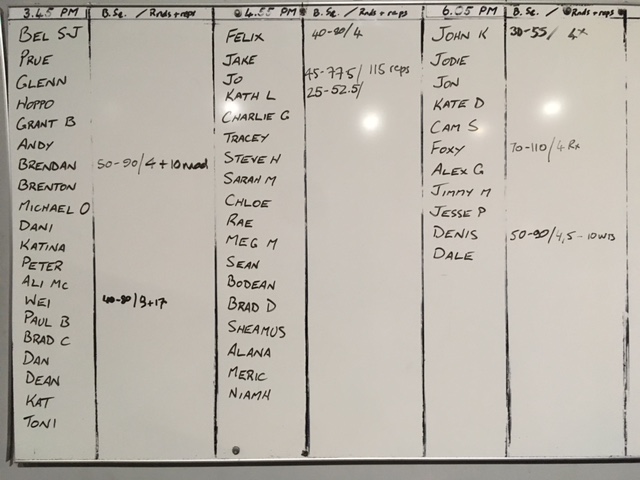 3.45 PM B.Sq. / Rnds + reps
BEL S-J
PRUE
GLENN
HOPPO
GRANT B
ANDY
BRENDAN 50-90/4+10 mod
BRENTON
MICHAEL O
DANI
KATINA
PETER
ALI MC
WEI 40-80/3+17
PAUL B
BRAD C
DAN
DEAN
KAT
TONI
4.55 PM B.Sq. / Rnds + reps
FELIX 40-90/4
JAKE
JO 45-77.5/ 115 reps
KATH L 25-52.5/
CHARLIE G
TRACEY
STEVE H
SARAH M
CHLOE
RAE
MEG M
SEAN
BODEAN
BRAD D
SHEAMUS
ALANA
MERIC
NIAMH
6.05 PM B.Sq. / Rnds + reps
JOHN K 30-55/ 4x
JODIE
JON
KATE D
CAM S
FOXY 70-110/4 Rx
ALEX G
JIMMY M
JESSE P
DENIS 50-90/4,5-10 WTS
DALE